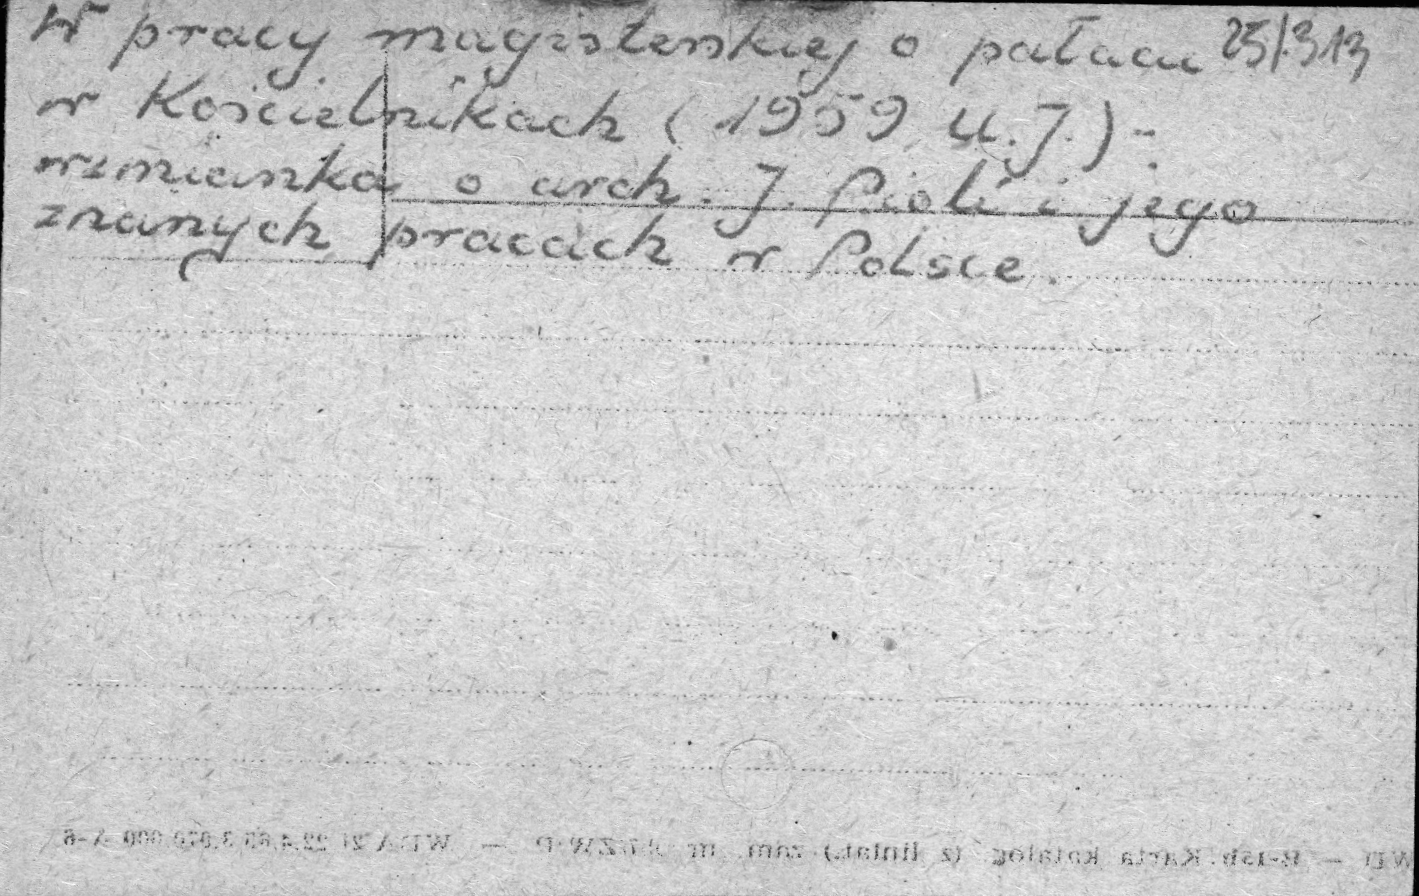 W pracy magisterskiej o pałacu 25/313
w Kościelnikach (1959 U.J.) -
wzmianka o arch. J. Pioli i jego
znanych pracach w Polsce.
WD — R-15b. Karta katalog. (z liniat.) zam. nr — WDA